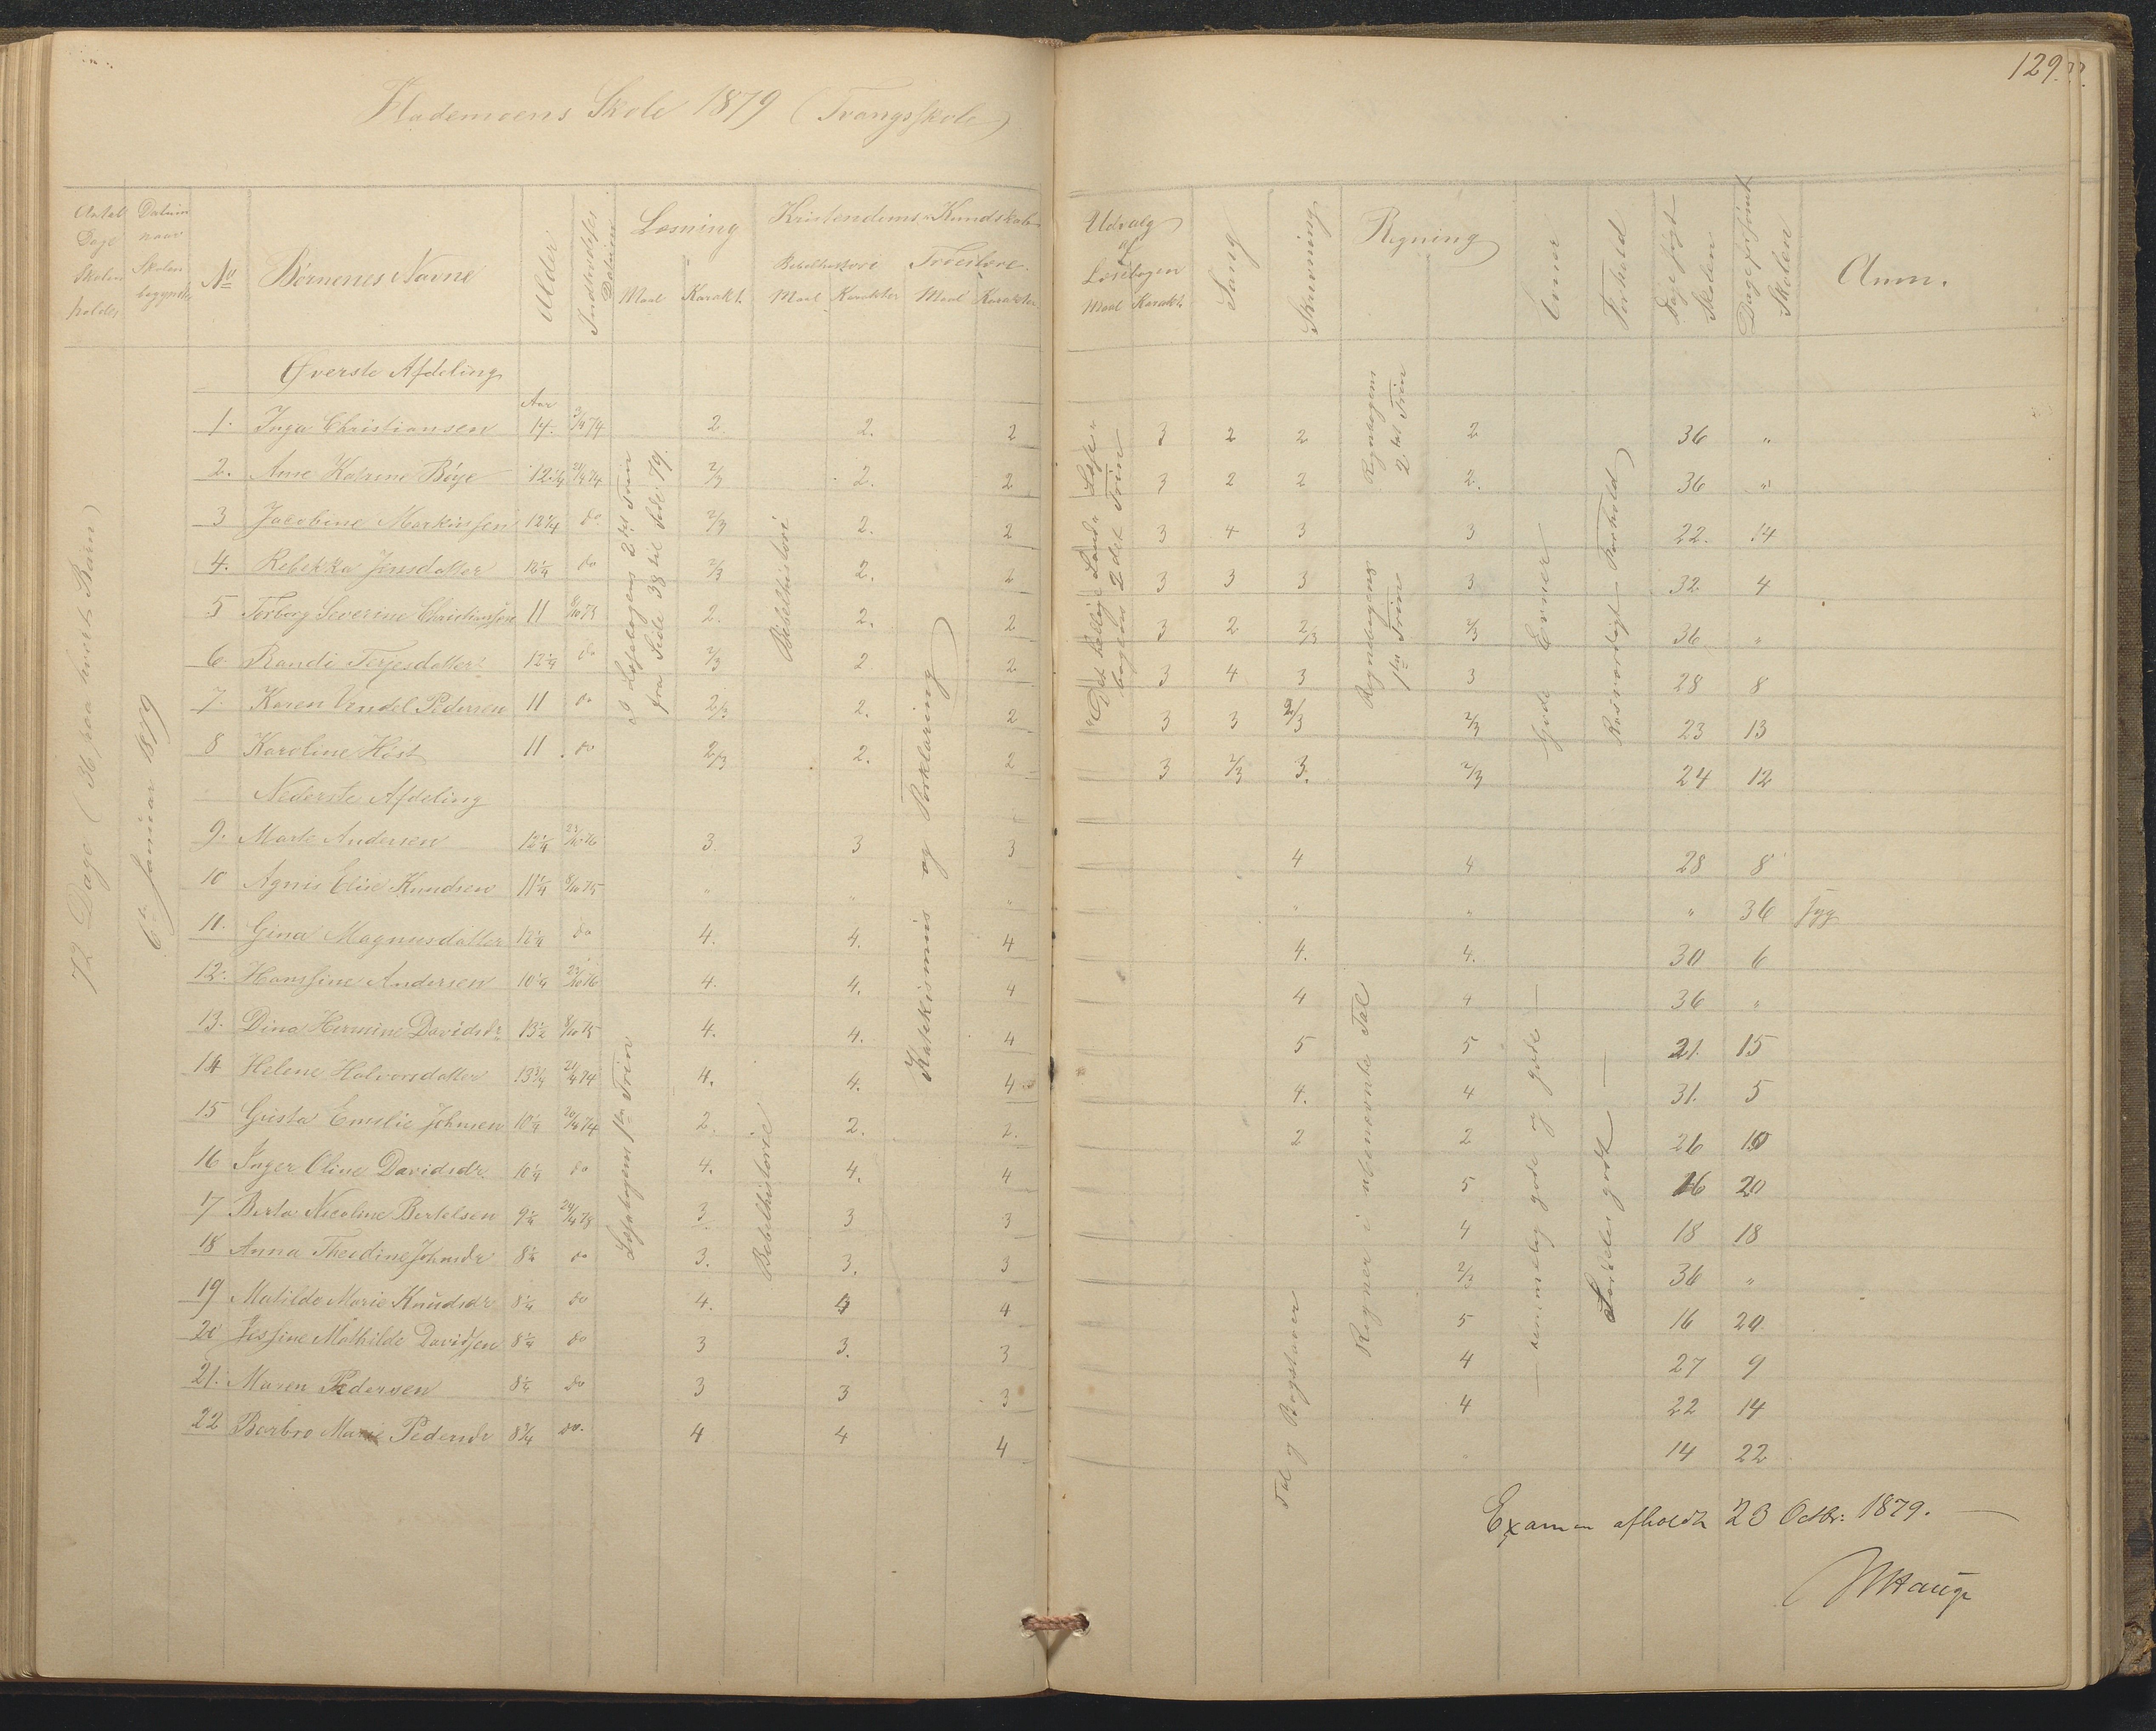 129.
Hademoens Skole 1879 (Tvangsskole)
Antal Dage Skolen holdes
Datum naar Skolen begyndte
No
Børnenes Navne
Alder
Indtrædelses Datum
Læsning
Maal Karakt.
Kristendoms Kundskab
Bibelhistori Troeslære
Maal Karakter Maal Karakter
Udvalg af Læsebogen
Maal Karakt.
Sang
Skrivning
Regning
Evner
Forhold
Dage søgt Skolen
Dage forsømt Skolen
Anm.
72 Dage (36 paa hvert Barn)
6te Januar 1879
I Læsebogens 2det Trin fra Side 38 til Side 79.
Bibelhistori
Katekismus og Forklaring
bogens 2det Trin
Regnebogens 2det Trin
Regnebogens 1ste Trin
Gode Evner
Rosværdigt Forhold
Øverste Afdeling
Aar
1. Inga Christiansen 14. 3/4 74 2. 2. 2 3 2 2 2 36 "
2. Ane Katrine Bøye 12 1/4 21/4 74 2/3 2. 2 3 2 2 2. 36 "
3 Jacobine Markussen 12 1/4 do 2/3 2. 2 3 4 3 3 22. 14
4. Rebekka Jensdatter 12 1/4 do 2/3 2. 2 3 3 3 3 32 4
5 Torborg Severine Christiansen 11 8/10 75 2. 2. 2 3 2 2/3 2/3 36 "
6. Randi Terjesdatter 12 1/4 do 2/3 2 2 3 4 3 3 28 8
7. Karen Vendel Pedersen 11 do 2/3 2. 2 3 3 2/3 2/3 23 13
8 Karoline Høst 11 do 2/3 2. 2 3 2/3 3. 2/3 24 12
Nederste Afdeling
Læsebogens 1ste Trin
Bibelhistorie
Regner i ubenævnte Tal
Tal og Bogstaver
— nemmelig gode og gode —
Særdeles godt —
9. Marte Andersen 12 1/4 23/10 76 3. 3 3 4 4 28 8
10 Agnis Elise Knudsen 11 1/4 8/10 75 " " " " " " 36 syg
11. Gina Magnusdatter 12 1/4 do 4. 4. 4 4. 4. 30 6
12. Hansine Andersen 10 1/4 23/10 76 4. 4. 4 4 4 36 "
13. Dina Hermine Davidsdr 13 1/2 8/10 75 4. 4. 4 5 5 21. 15
14 Helene Halvorsdatter 13 3/4 21/4 74 4. 4. 4 4. 4 31. 5
15 Gusta Emilie Johnsen 10 1/4 20/4 74 2. 2. 2. 2 2 26 10
16 Inger Oline Davidsdr. 10 1/4 do 4. 4. 4 5 16 20
17 Berta Nicoline Bertelsen 9 1/4 3. 3 3 4 18 18
18 Anna Theodine Johnsdr 8 1/4 do 3. 3. 3 2/3 36 "
19 Matilde Marie Knudsdr 8 1/4 do 4. 4 4 5 16 20
20 Jessine Mathilde Davidsen 8 1/4 do 3 3. 3 4 27 9
21. Maren Pedersen 8 1/4 do 3 3 3 4 22 14
22 Barbro Marie Pedersdr 8 3/4 do. 4 4 4 14 22
Examen afholdt 23 Octbr: 1879. —
Hauge